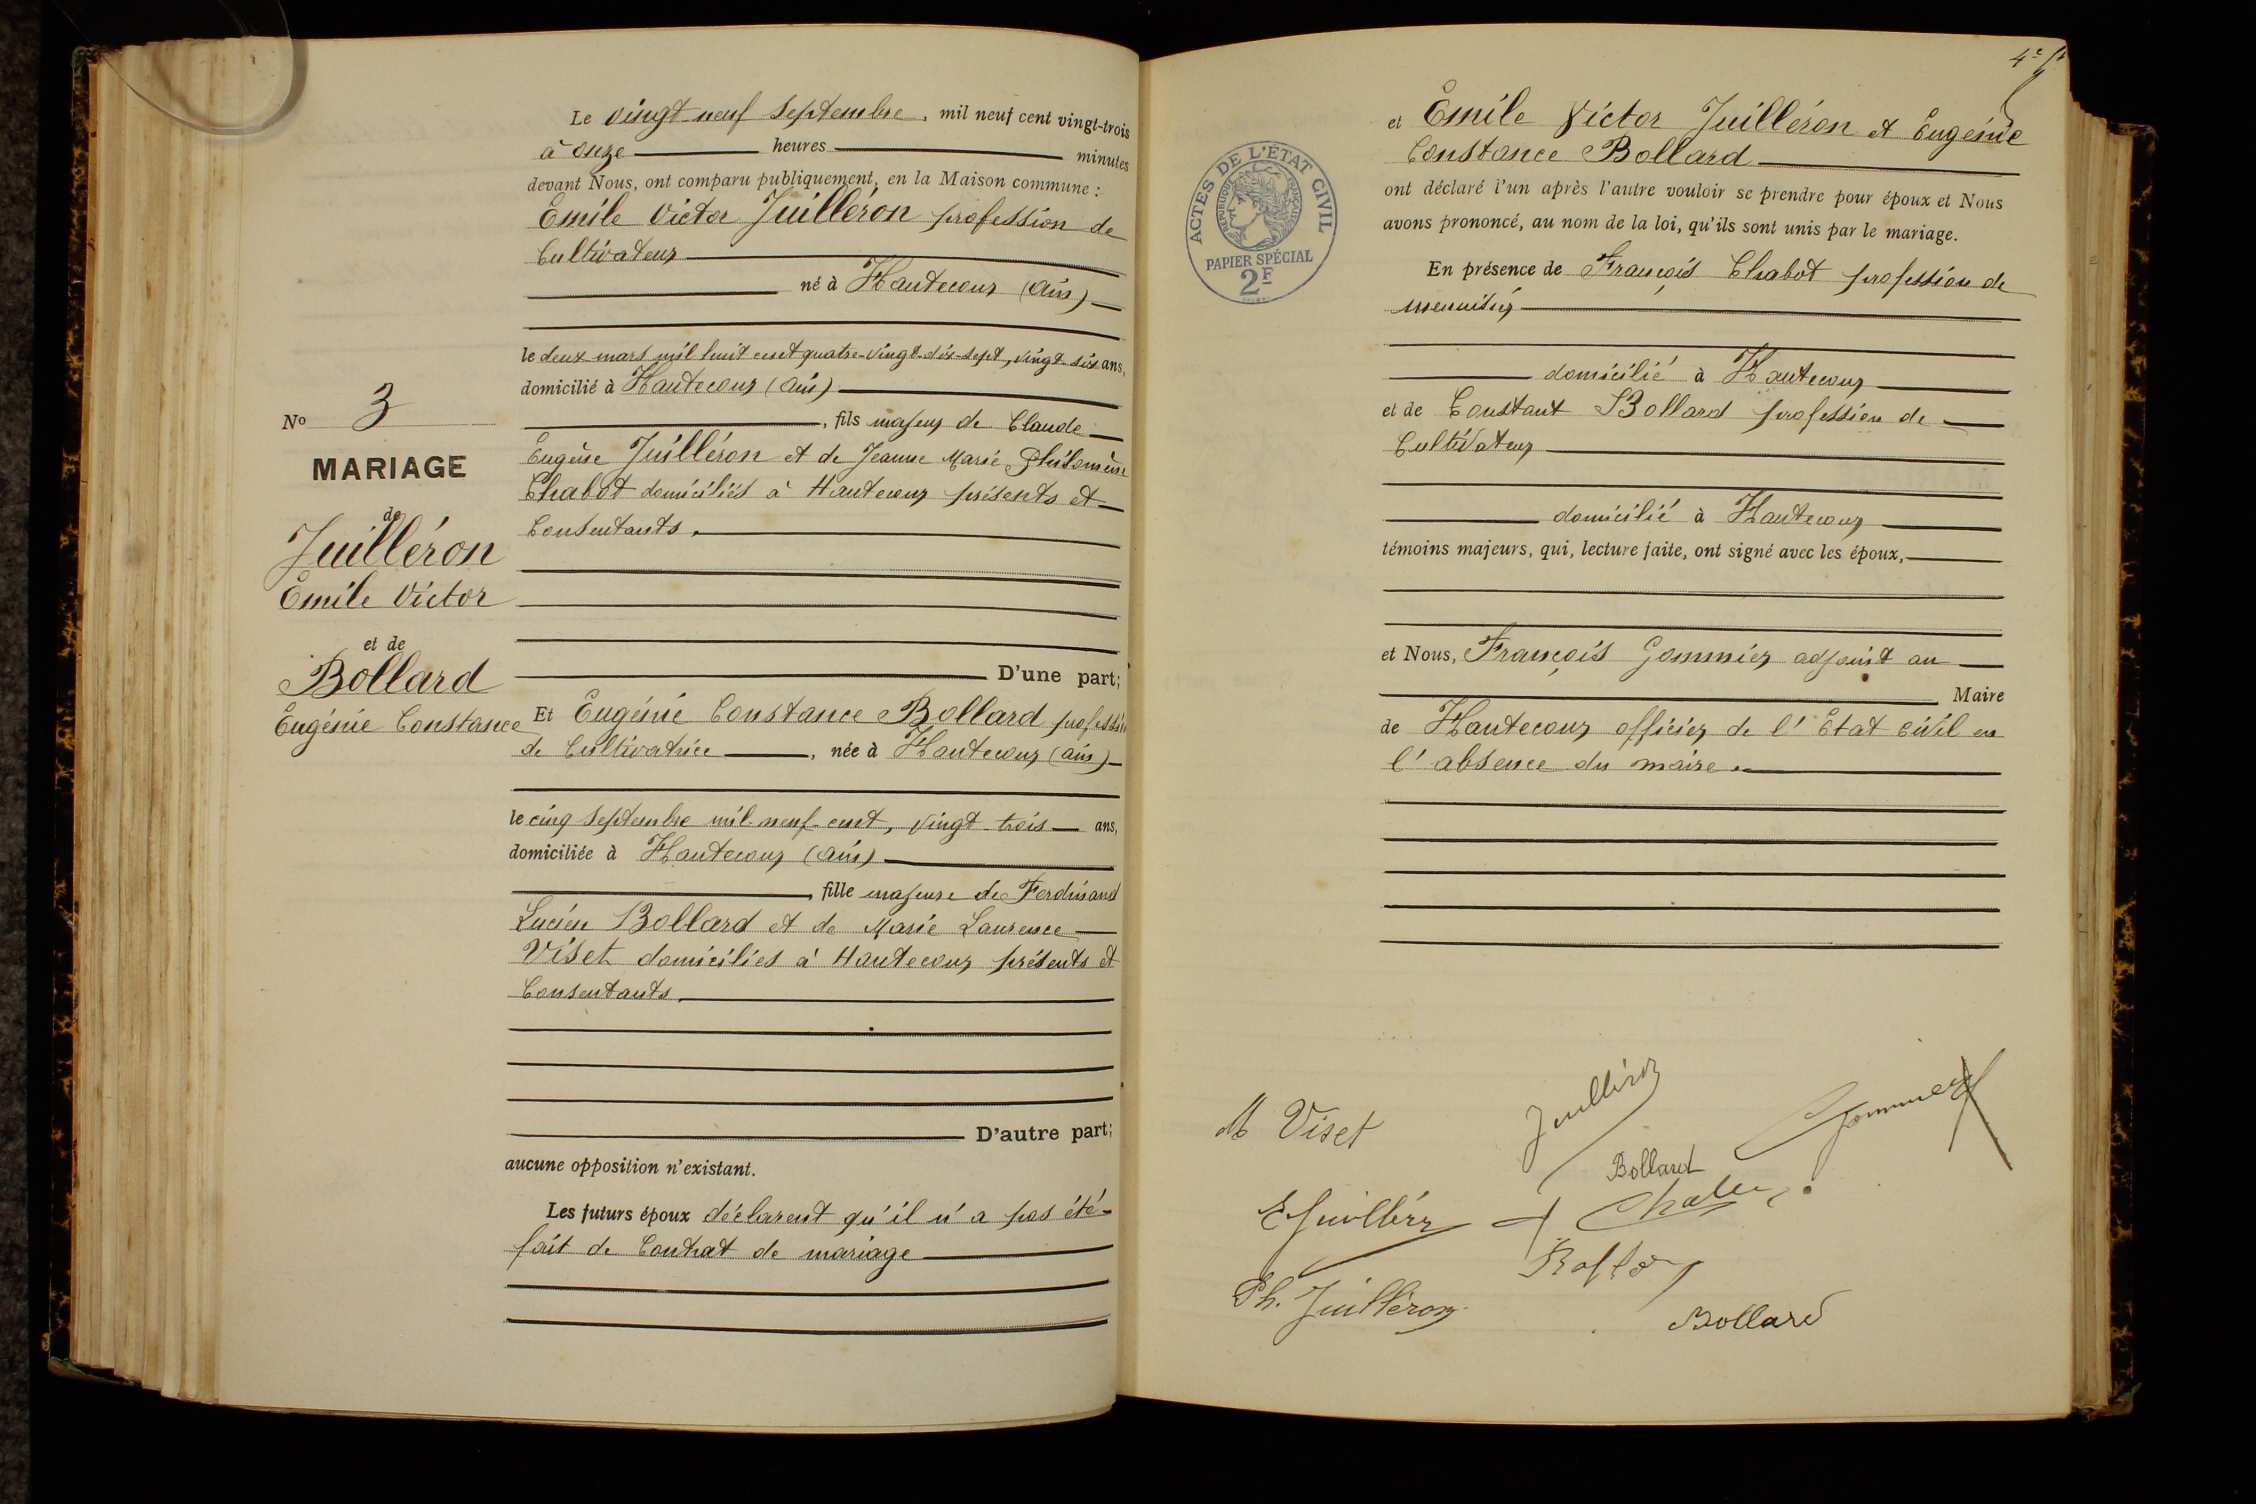 Le vingt-neuf Septembre, mil neuf cent vingt-trois
à onze heures minutes
devant Nous, ont comparu publiquement, en la Maison commune :
Emile Victor Juilléron profession de
Cultivateur
né à Hautecour (Ain)
le deux mars mil huit cent quatre-vingt-dix-sept, vingt-six ans,
domicilié à Hautecour (Ain)
, fils majeur de Claude
Eugène Juilléron et de Jeanne Marie Philomène
Chabot domiciliés à Hautecour présents et
Consentants.
D'une part;
Et Eugénie Constance Bollard profession
de Cultivatrice, née à Hautecour (Ain)
le cinq Septembre mil-neuf-cent, vingt-trois ans,
domiciliée à Hautecour (Ain)
, fille majeure de Ferdinand
Lucien Bollard et de Marie Laurence
Viset domiciliés à Hautecour présents et
Consentants.
D'autre part;
aucune opposition n'existant.
Les futurs époux déclarent qu'il n'a pas été
fait de Contrat de mariage
No 3
MARIAGE
de
Juilléron
Emile Victor
et de
Bollard
Eugénie Constance
ACTES DE L'ÉTAT CIVIL
RÉPUBLIQUE FRANÇAISE
PAPIER SPÉCIAL
2F
et Emile Victor Juilléron et Eugénie
Constance Bollard
ont déclaré l'un après l'autre vouloir se prendre pour époux et Nous
avons prononcé, au nom de la loi, qu'ils sont unis par le mariage.
En présence de François Chabot profession de
menuisier
domicilié à Hautecour
et de Constant Bollard profession de
Cultivateur
domicilié à Hautecour
témoins majeurs, qui, lecture faite, ont signé avec les époux,
et Nous, François Gommier adjoint au
Maire
de Hautecour officier de l'Etat civil en
l'absence du maire.
M Viset
Juilléron
Gommier
Bollard
E Juilléron
Chabot
Ph. Juilléron
Bollard